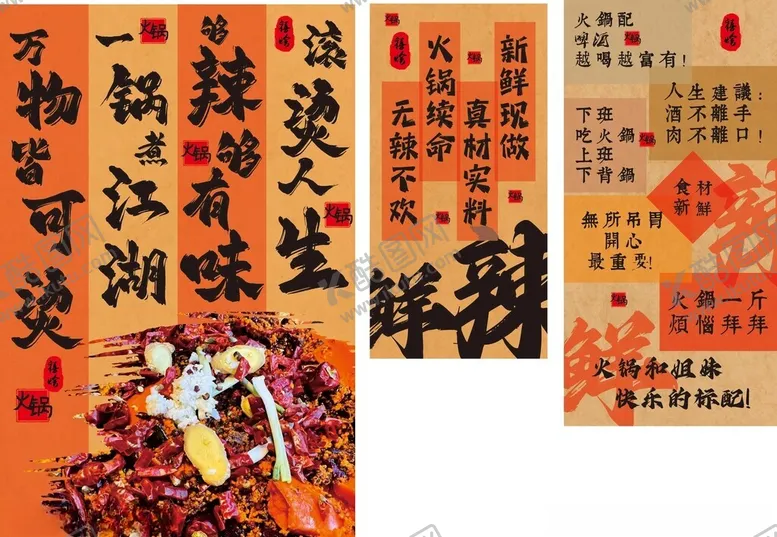 滚烫人生
够辣够有味
一锅煮江湖
万物皆可烫
火锅
火锅
火锅
火锅
新鲜现做
真材实料
火锅续命
无辣不欢
火锅
火锅
火锅
鲜辣
火鍋配
啤酒
越喝越富有!
火锅
人生建議:
酒不離手
肉不離口!
下班
吃火鍋
上班
下背鍋
火锅
食材
新鮮
無所吊胃
開心
最重要!
火锅
火鍋一斤
煩惱拜拜
辣
鮮
火锅和姐妹
快乐的标配!